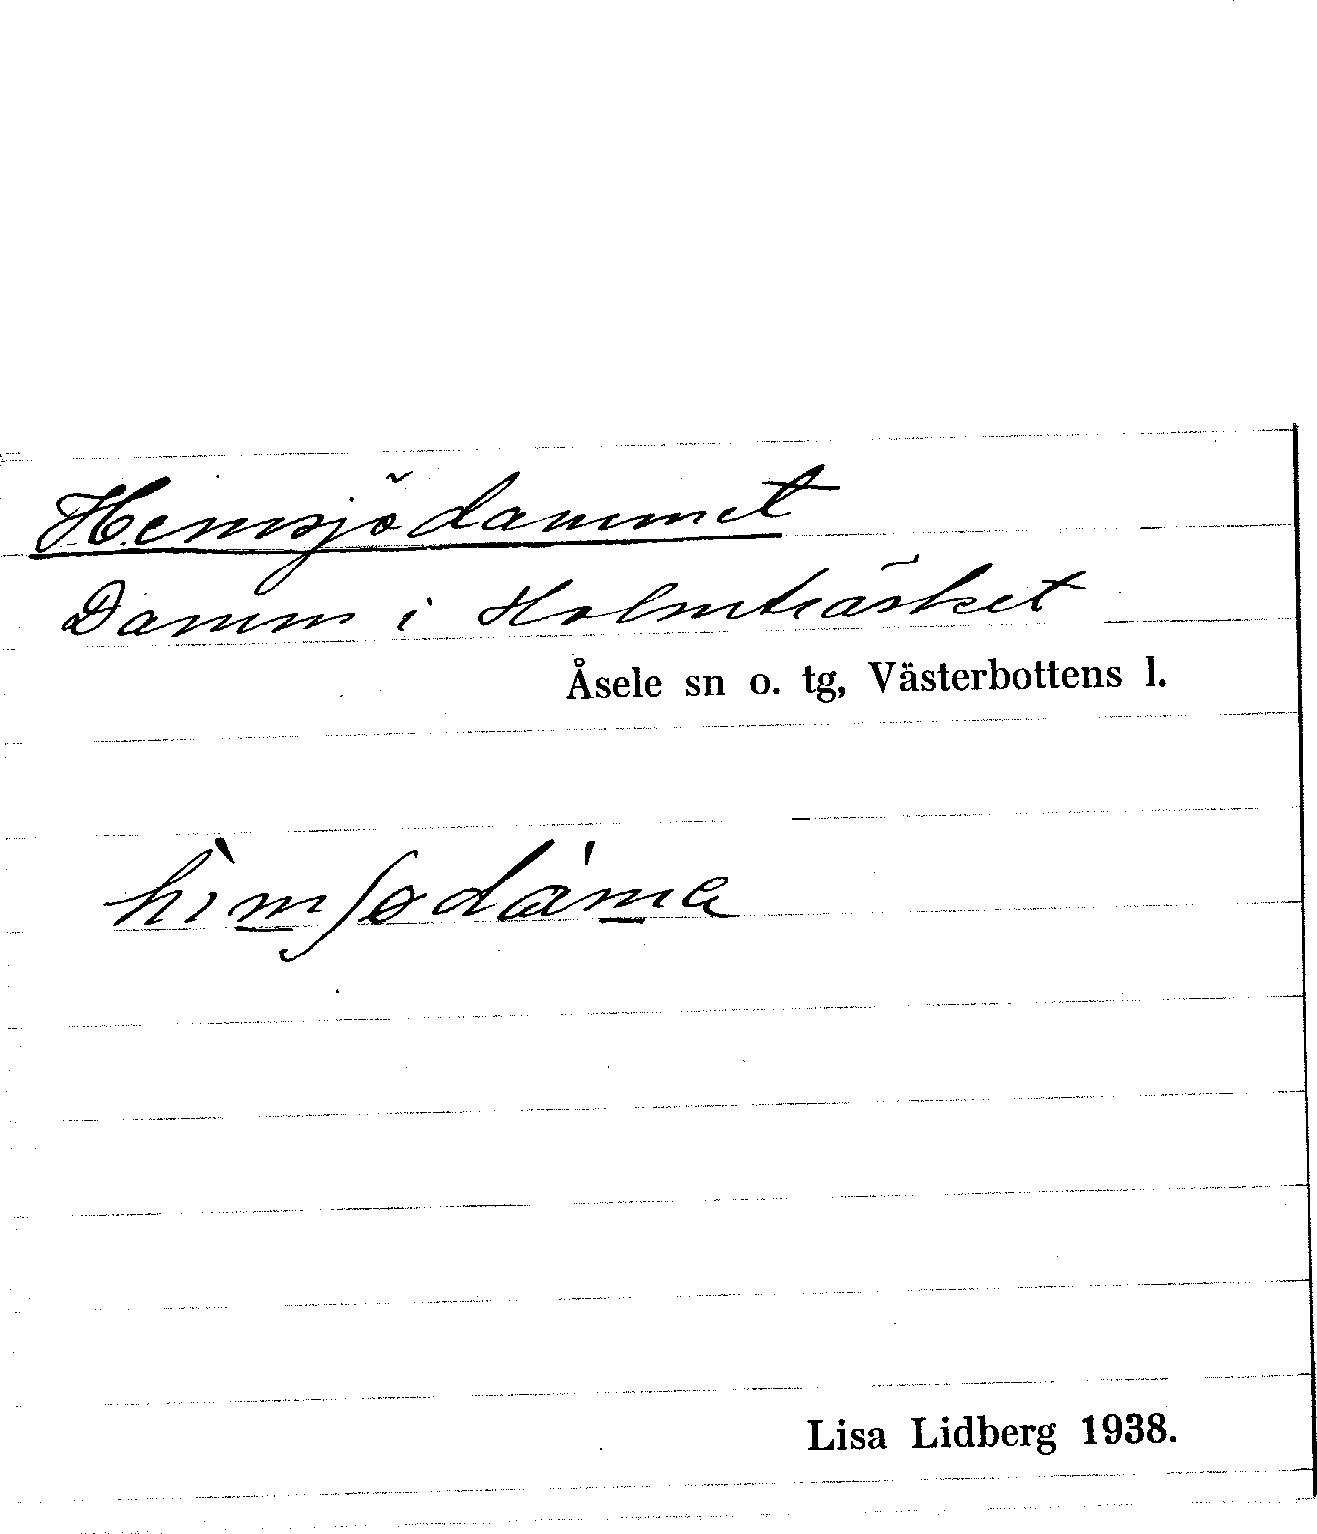 Hemsjödammet
Damm i Holmträsket
Åsele sn o. tg, Västerbottens l.
hìm̲ʃødám̲a
Lisa Lidberg 1938.